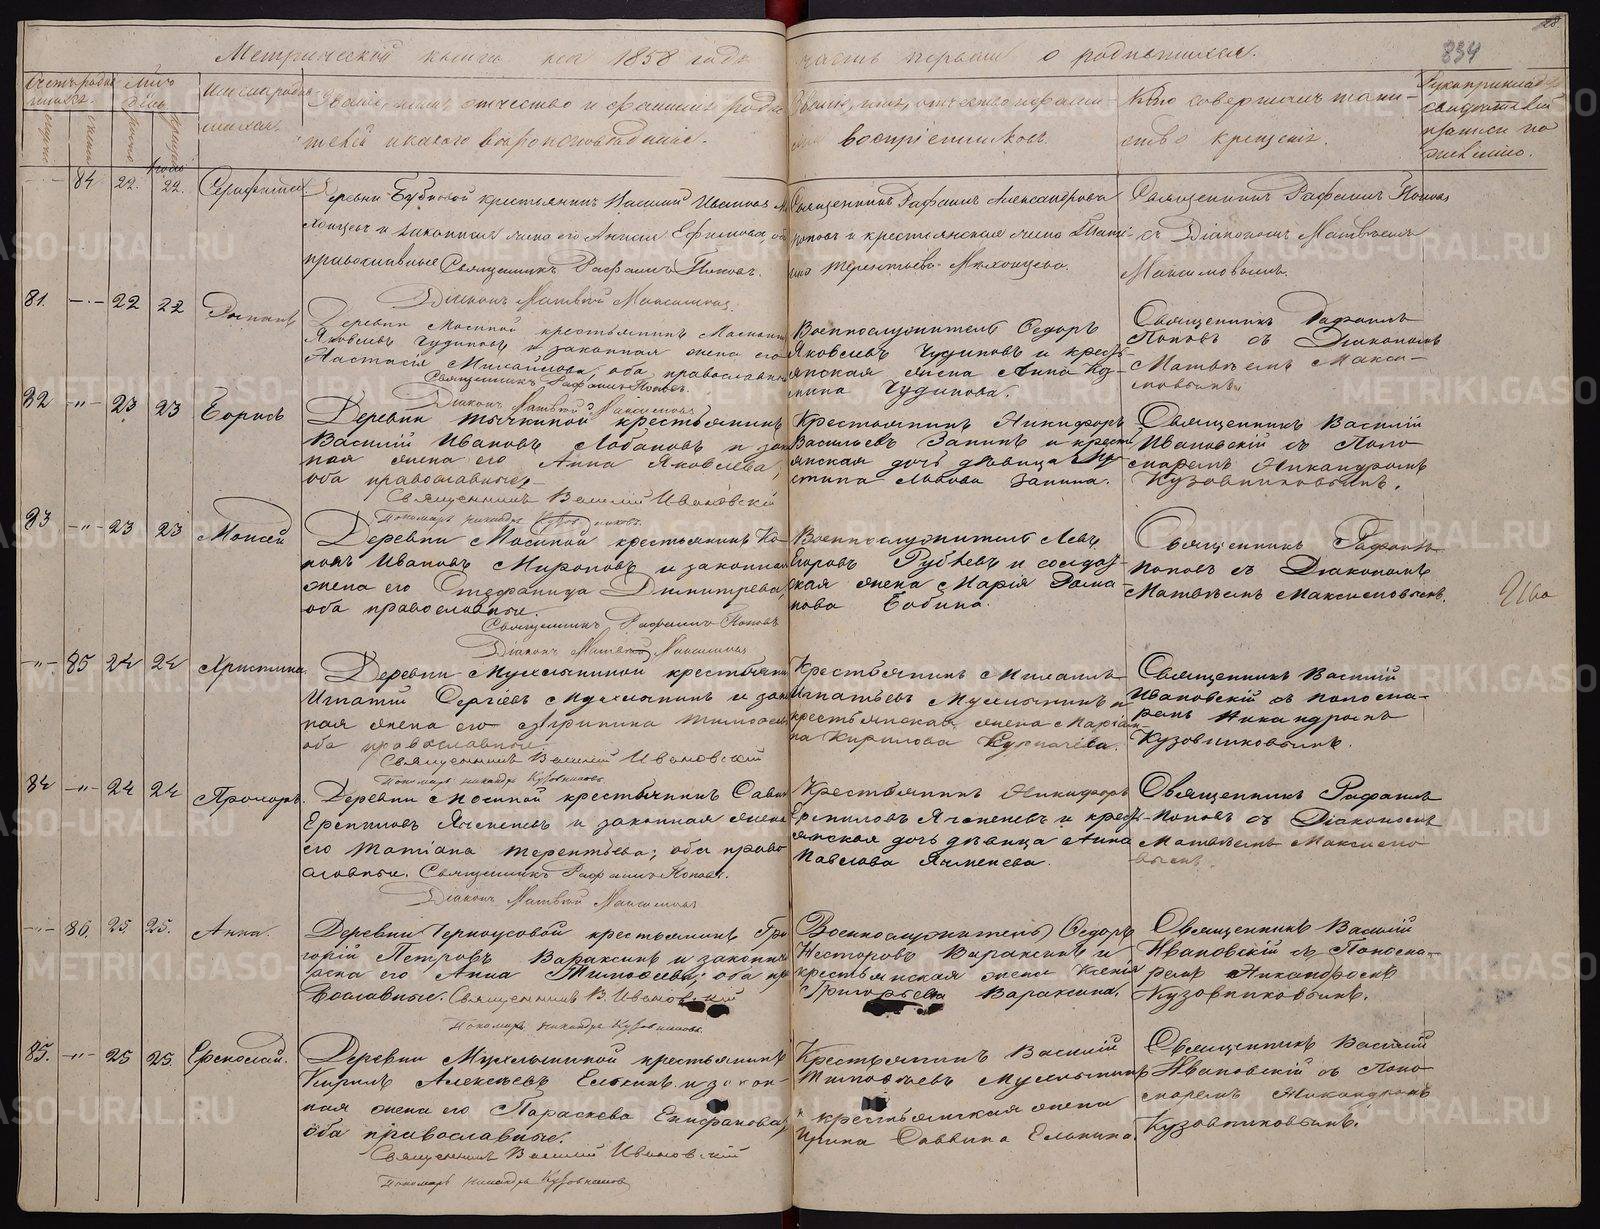 Метрической книги на 1858 годъ часть первая о родившихся.
834
28
Счетъ родившихся.
Мѣсяцъ и день
Имена родившихся.
Званіе, имя, отчество и фамилія родителей и какого вѣроисповѣданія.
Званіе, имя, отчество и фамилія воспріемниковъ.
Кто совершалъ таинство крещенія.
Рукоприкладство свидѣтелей записи по желанію.
84 22. 22. Серафима
Деревни крестьянинъ Василій Ивановъ
и законная жена его Анисія Ефимова, оба
православные Священникъ Рафаилъ Поповъ.
Діаконъ Матвѣй Максимовъ.
Священникъ Рафаилъ Александровъ
Поповъ и крестьянская жена Тати-
на Терентьева
Священникъ Рафаилъ Поповъ
съ Діакономъ Матвѣемъ
Максимовымъ.
81. -"- 22 22
Деревни Мосиной крестьянинъ
Яковлевъ Чудиновъ и законная жена его
Настасія Михайлова, оба православные
Священникъ Рафаилъ Поповъ.
Діаконъ Матвѣй Максимовъ
Военнослужитель Ѳедоръ
Яковлевъ Чудиновъ и кресть-
янская жена Анна Ку-
мина Чудинова.
Священникъ Рафаилъ
Поповъ съ Діакономъ
Матвѣемъ Макси-
мовымъ
82 -"- 23 23 Борисъ
Деревни крестьянинъ
Василій Ивановъ Лобановъ и закон
ная жена его Анна Яковлева,
оба православные
Священникъ Василій Ивановскій
Пономарь Никандръ Кузовниковъ.
Крестьянинъ Никифоръ
Васильевъ Запинъ и кресть
янская дочь дѣвица Ну
стина Львова Запина.
Священникъ Василій
Ивановскій съ Поно-
маремъ Никандромъ
Кузовниковымъ.
83 -"- 23 23 Моисей
Деревни Мосиной крестьянинъ Ко-
нонъ Ивановъ Мироновъ и законная
жена его Стефанида Димитрева,
оба православные.
Священникъ Рафаилъ Поповъ
Діаконъ Матвѣй Максимовъ
Военнослужитель Левъ
Егоровъ Рублевъ и солдат-
ская жена Марія Рома
нова Бабина.
Священникъ Рафаилъ
Поповъ съ Діакономъ
Матвѣемъ Максимовымъ.
-"- 85 24 24 Христина
Деревни Мухлыниной крестьянинъ
Игнатій Сергѣевъ Мухлынинъ и закон
ная жена его Агрипина Тимоѳеева
оба православные.
Священникъ Василій Ивановскій
Пономарь Никандръ Кузовниковъ
Крестьянинъ Михаилъ
Игнатьевъ Мухлынинъ и
крестьянская жена Маріан-
на Кирилова Курпачева.
Священникъ Василій
Ивановскій съ Понома-
ремъ Никандромъ
Кузовниковымъ.
84 -"- 24 24 Прохоръ.
Деревни Мосиной крестьянинъ Савинъ
Ермиловъ Ячменевъ и законная жена
его Татіана Терентьева; оба право
славные. Священникъ Рафаилъ Поповъ.
Діаконъ Матвѣй Максимовъ
Крестьянинъ Никифоръ
Ермиловъ Ячменевъ и кресть-
янская дочь дѣвица Анна
Павлова Ячменева
Священникъ Рафаилъ
Поповъ съ Діакономъ
Матвѣемъ Максимо
вымъ.
-"- 86. 25 25. Анна.
Деревни Черноусовой крестьянинъ Гри
горій Петровъ Вараксинъ и законная
жена его Анна Тимоѳеева; оба пра
вославные. Священникъ В. Ивановскій
Пономарь Никандръ Кузовниковъ.
Военнослужитель Ѳедоръ
Несторовъ Вараксинъ и
крестьянская жена Ксенія
Григорьева Вараксина.
Священникъ Василій
Ивановскій съ Понома-
ремъ Никандромъ
Кузовниковымъ.
85. -"- 25 25. Ермолай.
Деревни Мухлыниной крестьянинъ
Кирилъ Алексѣевъ Елькинъ и закон-
ная жена его Параскева Епифанова,
оба православные.
Священникъ Василій Ивановскій
Пономарь Никандръ Кузовниковъ
Крестьянинъ Василій
Тимоѳеевъ Мухлынинъ
и крестьянская жена
Ирина Саввина Елькина.
Священникъ Василій
Ивановскій съ Поно
маремъ Никандромъ
Кузовниковымъ.
METRIKI.GASO-URAL.RU